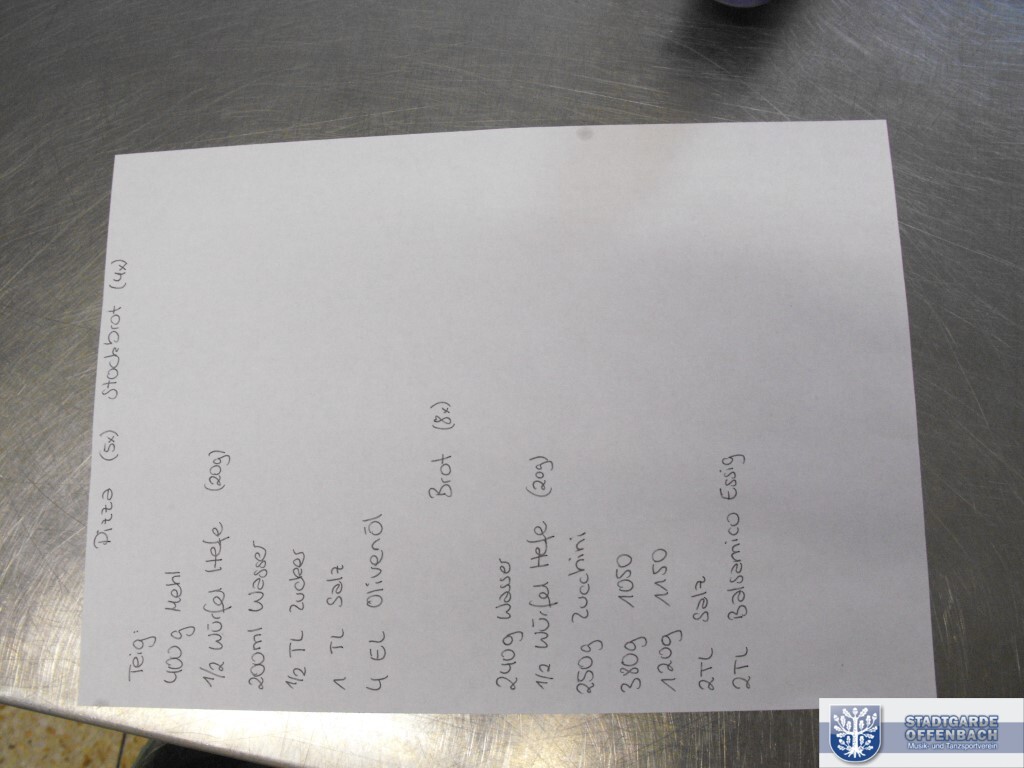 Pizza (5x) Stockbrot (4x)
Teig:
400 g Mehl
1/2 Würfel Hefe (20g)
200ml Wasser
1/2 TL Zucker
1 TL Salz
4 EL Olivenöl
Brot (8x)
240g Wasser
1/2 Würfel Hefe (20g)
250g Zucchini
380g 1050
120g 1150
2TL Salz
2TL Balsamico Essig
STADTGARDE
OFFENBACH
Musik- und Tanzsportverein